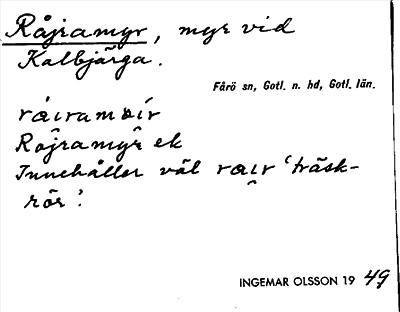 Råjramyr, myr vid
Kalbjärga.
Fårö sn, Gotl. n. hd, Gotl. län.
Rojramyr ek
Innehåller väl ra͜ɪr 'träsk-
rör'.
INGEMAR OLSSON 19 49